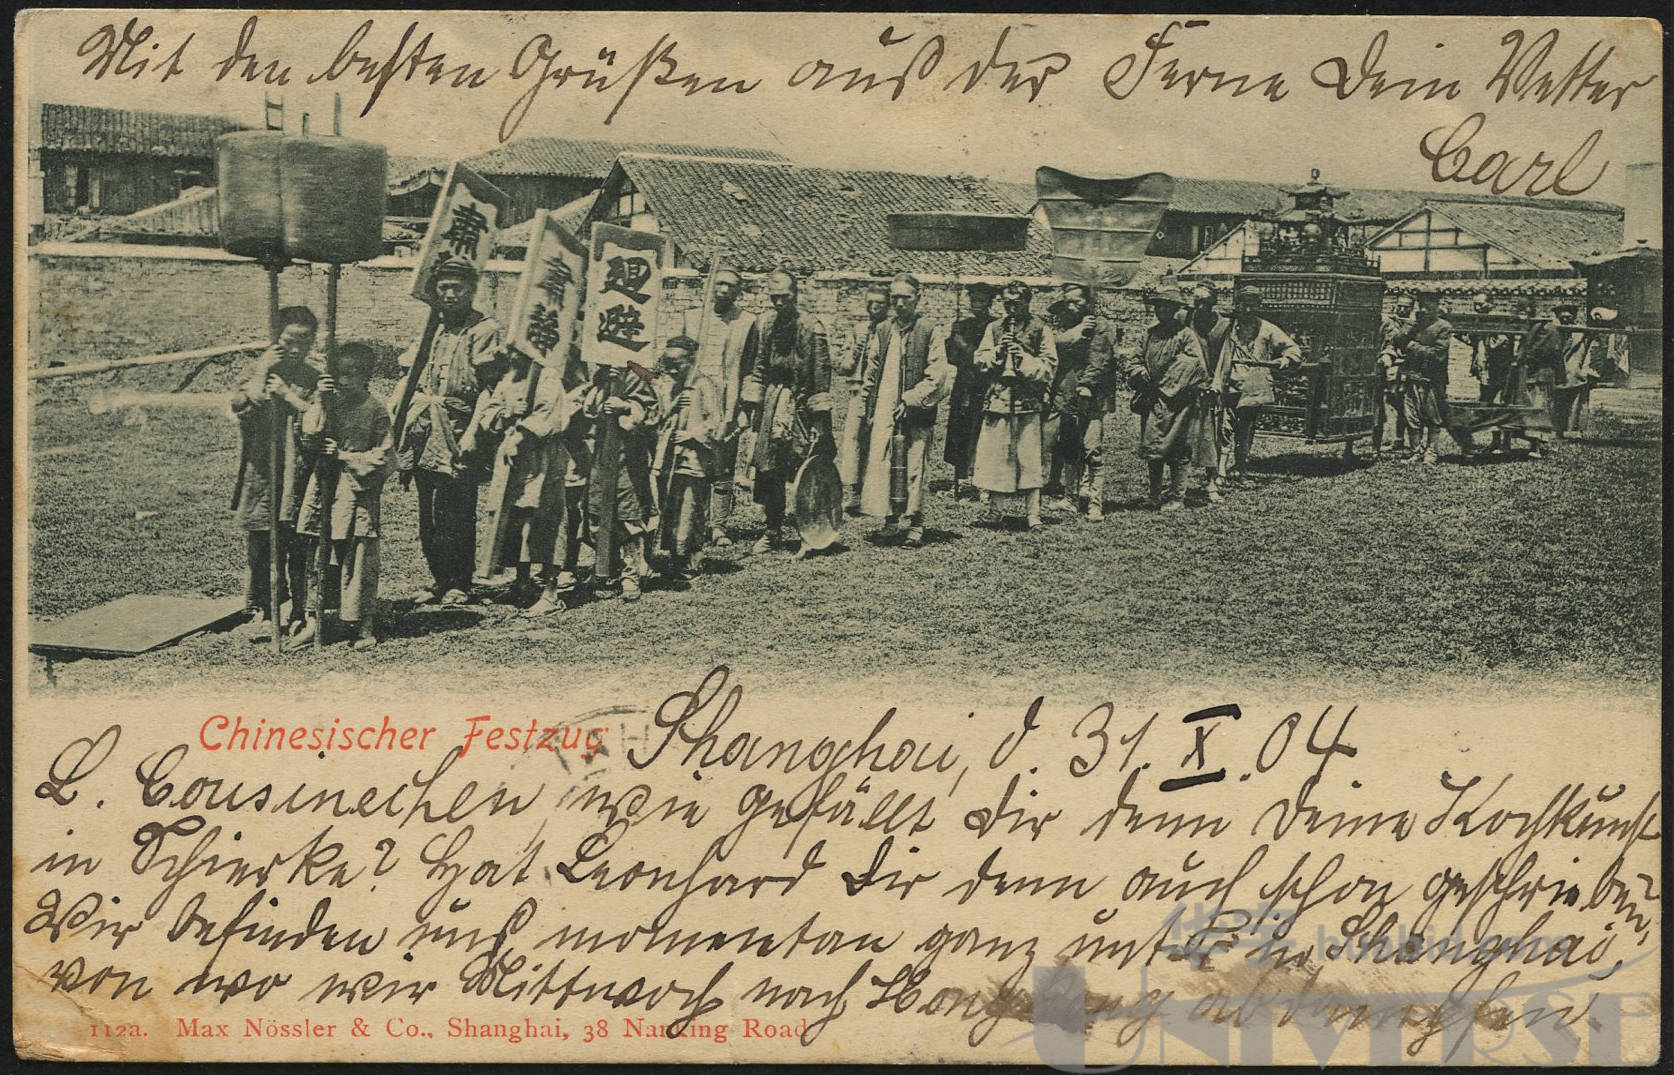 Mit den besten Grüßen aus der Ferne Dein Vetter
Carl
肅
肅 靜
迴避
Chinesischer Festzug
Shanghai, d. 31. X. 04
L. Cousinechen, wie gefällt Dir denn Deine Kochkunst
in Schierke? Hat Leonhard Dir denn auch schon geschrieben?
Wir befinden uns momentan ganz unten in Shanghai,
von wo wir Mittwoch nach Hongkong abdampfen.
112a. Max Nössler & Co., Shanghai, 38 Nanking Road
UNIVERSE